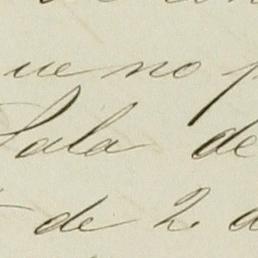 que no
Sala de
de 2 d